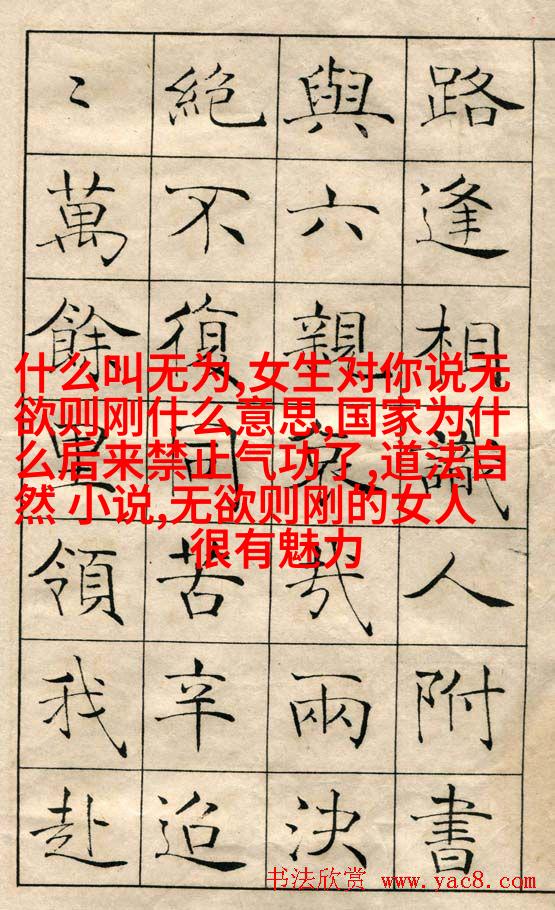 路逢相識人附書
與六親哀哉兩決
絕不復同苦辛迢
〻萬餘里領我赴
什么叫无为,女生对你说无
欲则刚什么意思,国家为什
么后来禁止气功了,道法自
然 小说,无欲则刚的女人
很有魅力
书法欣赏 www.yac8.com